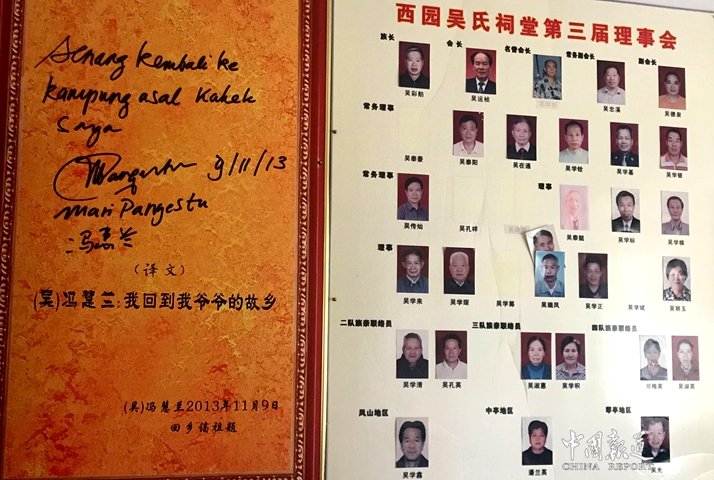 Senang kembali ke
kampung asal kakek
saya
9/11/13
Mari Pangestu
冯慧兰
(译文)
(吴)冯慧兰:我回到我爷爷的故乡
(吴)冯慧兰2013年11月9日
回乡谒祖题
西园吴氏祠堂第三届理事会
族长 会长 名誉会长 常务副会长 副会长
吴彩韵 吴运桢 吴忠溪 吴德泉
常务理事
吴泰豪 吴泰阳 吴在通 吴学铨 吴学基 吴学银
常务理事 理事
吴传灿 吴孔祥 吴泰懿 吴学标 吴学棋
理事
吴学来 吴学煌 吴学筹 吴瑞凤 吴学正 吴学斌 吴丽玉
二队族亲联络员 三队族亲联络员 四队族亲联络员
吴学滑 吴孔英 吴淑惠 吴学积 吴淑英
凤山地区 中亭地区 郡亭地区
吴学鑫 潘兰英 吴光
中国报道
CHINA REPORT